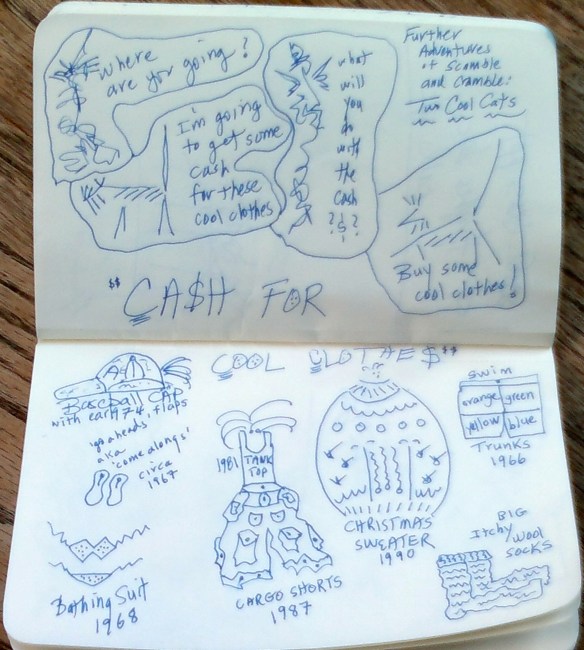 Further
Adventures
of Scamble
and Cramble:
Two Cool Cats
Where
are you going?
I'm going
to get some
cash
for these
cool clothes
what
will
you
do
with
the
cash
???
Buy some
cool clothes!
"$$ CA$H FOR
COOL CLOTHE$ $$"
Baseball CAP
with ear flaps
1974
'go aheads'
aka
'come alongs'
circa
1967
Bathing Suit
1968
1981
TANK
TOP
CARGO SHORTS
1987
CHRISTMAS
SWEATER
1990
swim
orange green
yellow blue
Trunks
1966
BIG
Itchy Wool
SOCKS